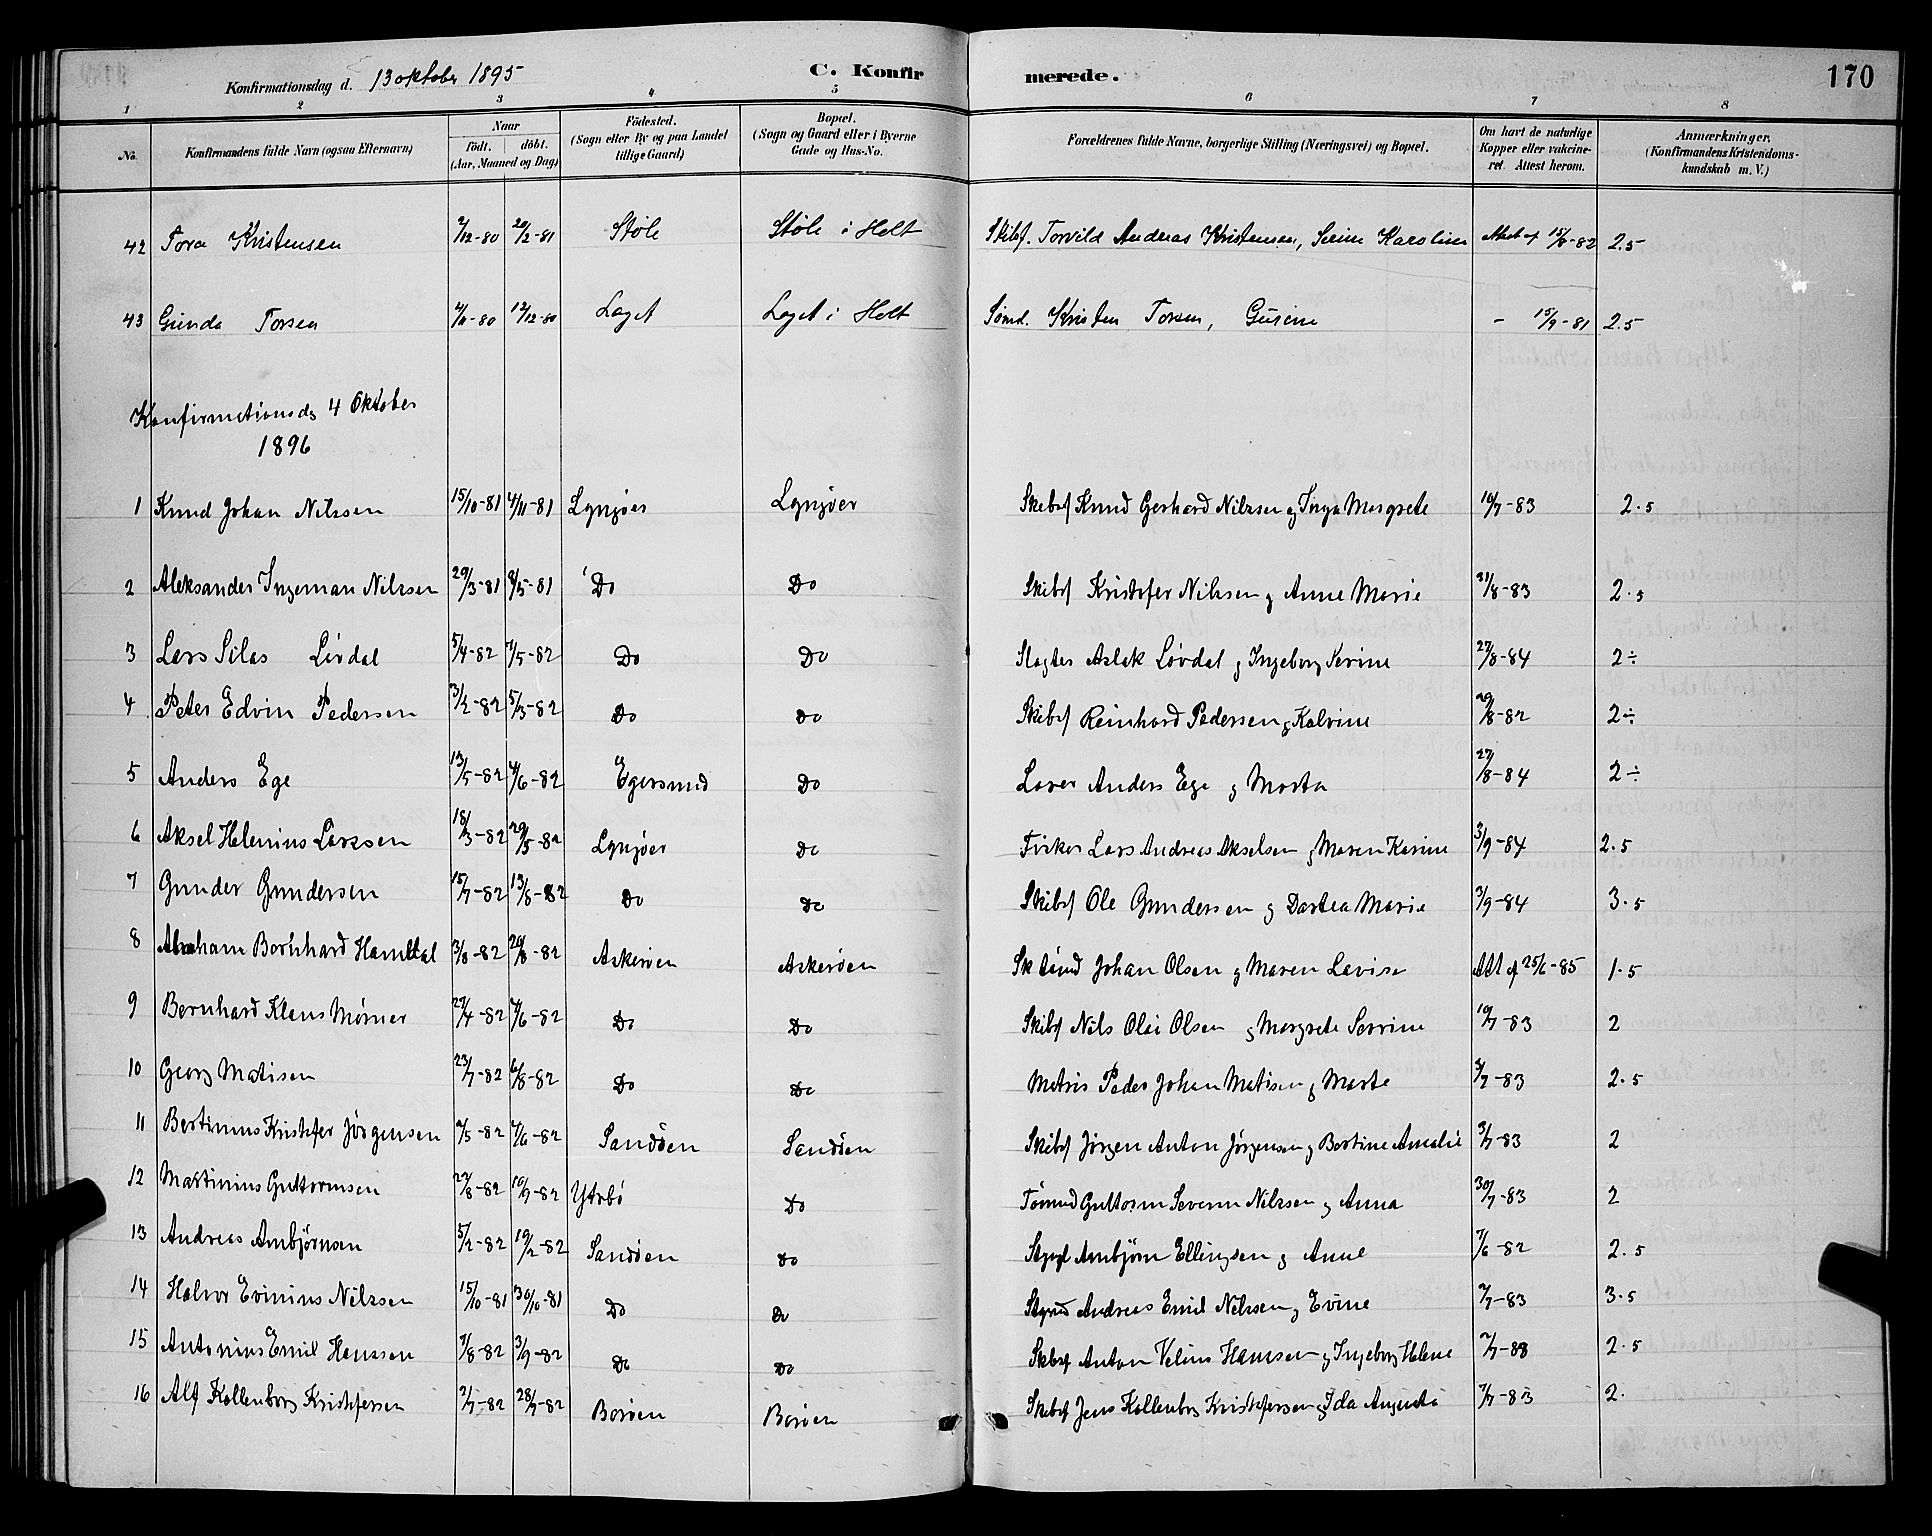 Konfirmationsdag d. 13 oktober 1895 C. Konfirmerede. 170
1 2 3 4 5 6 7 8
No. Konfirmandens fulde Navn (ogsaa Efternavn) Naar födt. döbt. (Aar, Maaned og Dag) Födested. (Sogn eller By og paa Landet tillige Gaard) Bopæl. (Sogn og Gaard eller i Byerne Gade og Hus-No. Forældrenes fulde Navne, borgerlige Stilling (Næringsvei) og Bopæl. Om havt de naturlige Kopper eller vakcineret. Attest herom. Anmærkninger. (Konfirmandens Kristendomskundskab m. V.)
42 Tora Kristensen -80 20/2-81 Støle Støle i Holt Skibsf. Torvild Andreas Kristensen, Serine Karoline Attest af 15/8-82 2.5
43 Gunda Torsen -80 12/12-80 Laget Laget i Holt Sømd. Kristen Torsen, Gurine - 15/9-81 2.5
Konfirmationsdg 4 Oktober
1896
1 Knud Johan Nilssen 15/10-81 4/11-81 Lyngøer Lyngøer Skibsf Knud Gerhard Nilssen og Inga Margrete 10/7-83 2.5
2 Aleksander Ingeman Nilssen 29/3-81 8/5-81 Do Do Skibsf Kristofer Nilssen og Anne Marie 31/8-83 2.5
3 Lars Silas Løvdal 5/4-82 7/5-82 Do Do Slagter Aslak Løvdal og Ingeborg Serine 27/8-84 2÷
4 Peter Edvin Pedersen 3/2-82 5/3-82 Do Do Skibsf Reinhard Pedersen og Kalvine 29/8-82 2÷
5 Anders Ege 13/5-82 4/6-82 Egersund Do Anders Ege og Marta 27/8-84 2÷
6 Aksel Helenius Larssen 18/3-82 29/5-82 Lyngøer Do Fisker Lars Andreas Akselsen og Maren Karine 3/9-84 2.5
7 Gunder Gundersen 15/7-82 13/8-82 Do Do Skibsf Ole Gundersen og Dortea Marie 3/9-84 3.5
8 Abraham Bernhard Hamdal 3/8-82 20/8-82 Askerøen Askerøen Johan Olsen og Maren Lovise Att af 25/6-85 1.5
9 Bernhard Klaus Mørner 27/4-82 4/6-82 Do Do Skibsf Nils Olai Olsen og Margrete Serine 10/7-83 2
10 Georg Matisen 23/7-82 6/8-82 Do Do Matros Peder Johan Matisen og Marte -83 2.5
11 Bertinius Kristofer Jørgensen -82 4/6-82 Sandøen Sandøen Skibsf Jørgen Anton Jørgensen og Bertine Amalie 3/7-83 2
12 Martinius Guttormsen 27/8-82 10/9-82 Ytrebø Do Tømmd Guttorm Severin Nilssen og Anna 30/7-83 2
13 Andreas Anbjørnsen 5/2-82 19/2-82 Sandøen Do Anbjørn Ellingsen og Anne 7/6-82 2.5
14 Halvor Evinius Nilssen 15/10-81 30/10-81 Do Do Andreas Emil Nilssen og Evine -83 3.5
15 Antonius Emil Hanssen -82 3/9-82 Do Do Skibsf Anton Velius Hansen og Ingeborg Helene 2.5
16 Alf Kallenborg Kristofersen 2/7-82 28/7-82 Borøen Borøen Skibsf Jens Kallenborg Kristofersen og Ida Augusta 7/7-83 2.